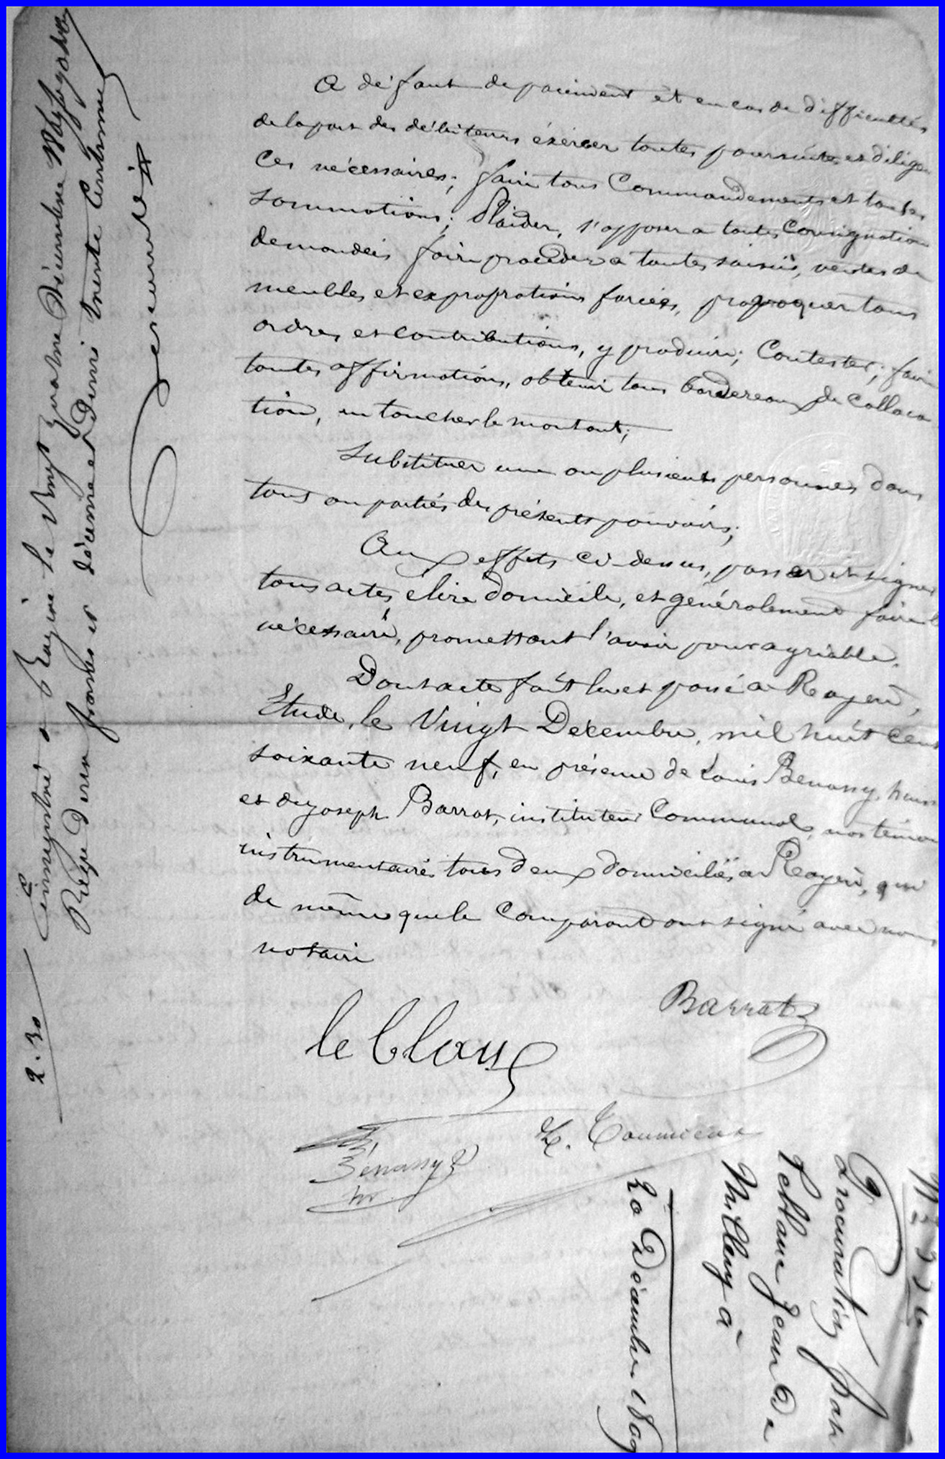 A défaut de paiement et en cas de difficultés
de la part des débiteurs éxércer toutes poursuites et diligen
ces nécessaires; faire tous Commandements et toutes
Sommations; Plaider, s'opposer a toutes Consignations
demandées faire procéder a toutes saisies, ventes de
meubles et expropriations forcées, provoquer tous
ordres et Contributions, y produire; Contester; faire
toutes affirmations, obtenir tous bordereaux de Colloca
tion, en toucher le montant;
Substituer une ou plusieurs personnes dans
tous ou parties des présents pouvoirs;
Aux effets ci-dessus, passer et signer
tous actes, elire domicile, et généralement faire le
nécessaire, promettant l'avoir pour agréable.
Dont acte fait lu et passé a Royère,
Etude, le Vingt Décembre, mil huit cent
soixante neuf, en présence de Louis Benassy,
et de Joseph Barrat, instituteur Communal, nos témoins
instrumentaires tous deux domiciliés a Royère, qui
de même que le Comparant ont signé avec nous
notaire
leblanc
Barrat
Benassy
Enregistré à Royère le Vingt quatre Décembre
Reçu deux francs et décime et Demi trente Centimes
2.30
Procuration par
Leblanc Jean
à
20 Décembre 1869